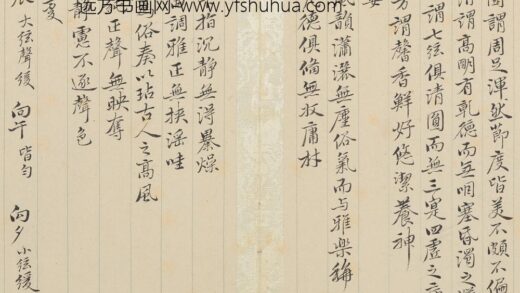 远方书画网-www.yfshuhua.com
圓謂周足渾然節度皆美不頗不偏
謂高明有乾德而無咽塞昏濁之
謂七弦俱清圓而無三寔四虛之
芳謂馨香鮮好修潔養神
韻瀟灑無塵俗氣而与雅樂稱
德俱備無收庸材
指沉静無浮暴燥
調雅正無挾淫哇
俗奏以玷古人之高風
正聲無映奪
静慮不逐聲色
大弦聲緩 向午 皆勻 向夕 小弦緩